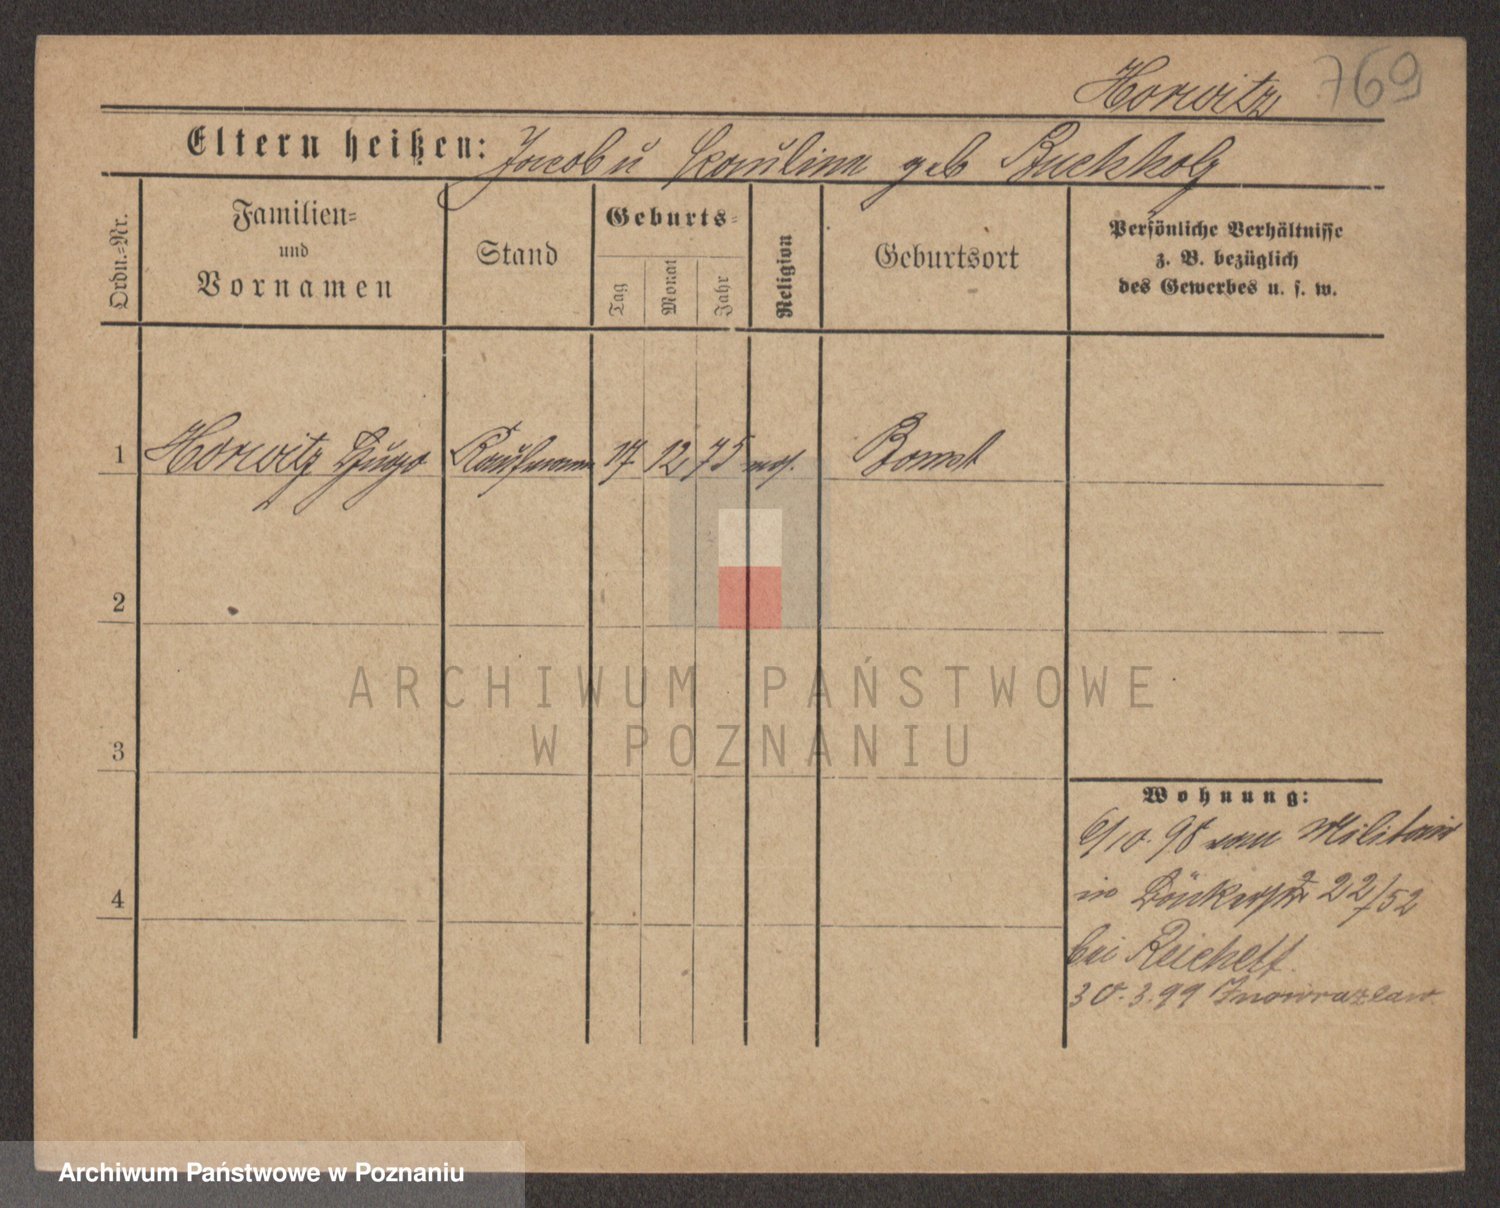 Horwitz 769
Eltern heißen: Jacob u Paulina geb Buchholz
Ordn.=Nr.
Familien=
und
Vornamen
Stand
Geburts=
Tag
Monat
Jahr
Religion
Geburtsort
Persönliche Verhältnisse
z. B. bezüglich
des Gewerbes u. s. w.
1 Horwitz Hugo Kaufmann 17 12 75 mos. Bomst
2
3
4
Wohnung:
6/10. 98 vom Militair
in 22/52
bei Reichelt
30.3.99 Inowrazlaw
ARCHIWUM PAŃSTWOWE
W POZNANIU
Archiwum Państwowe w Poznaniu